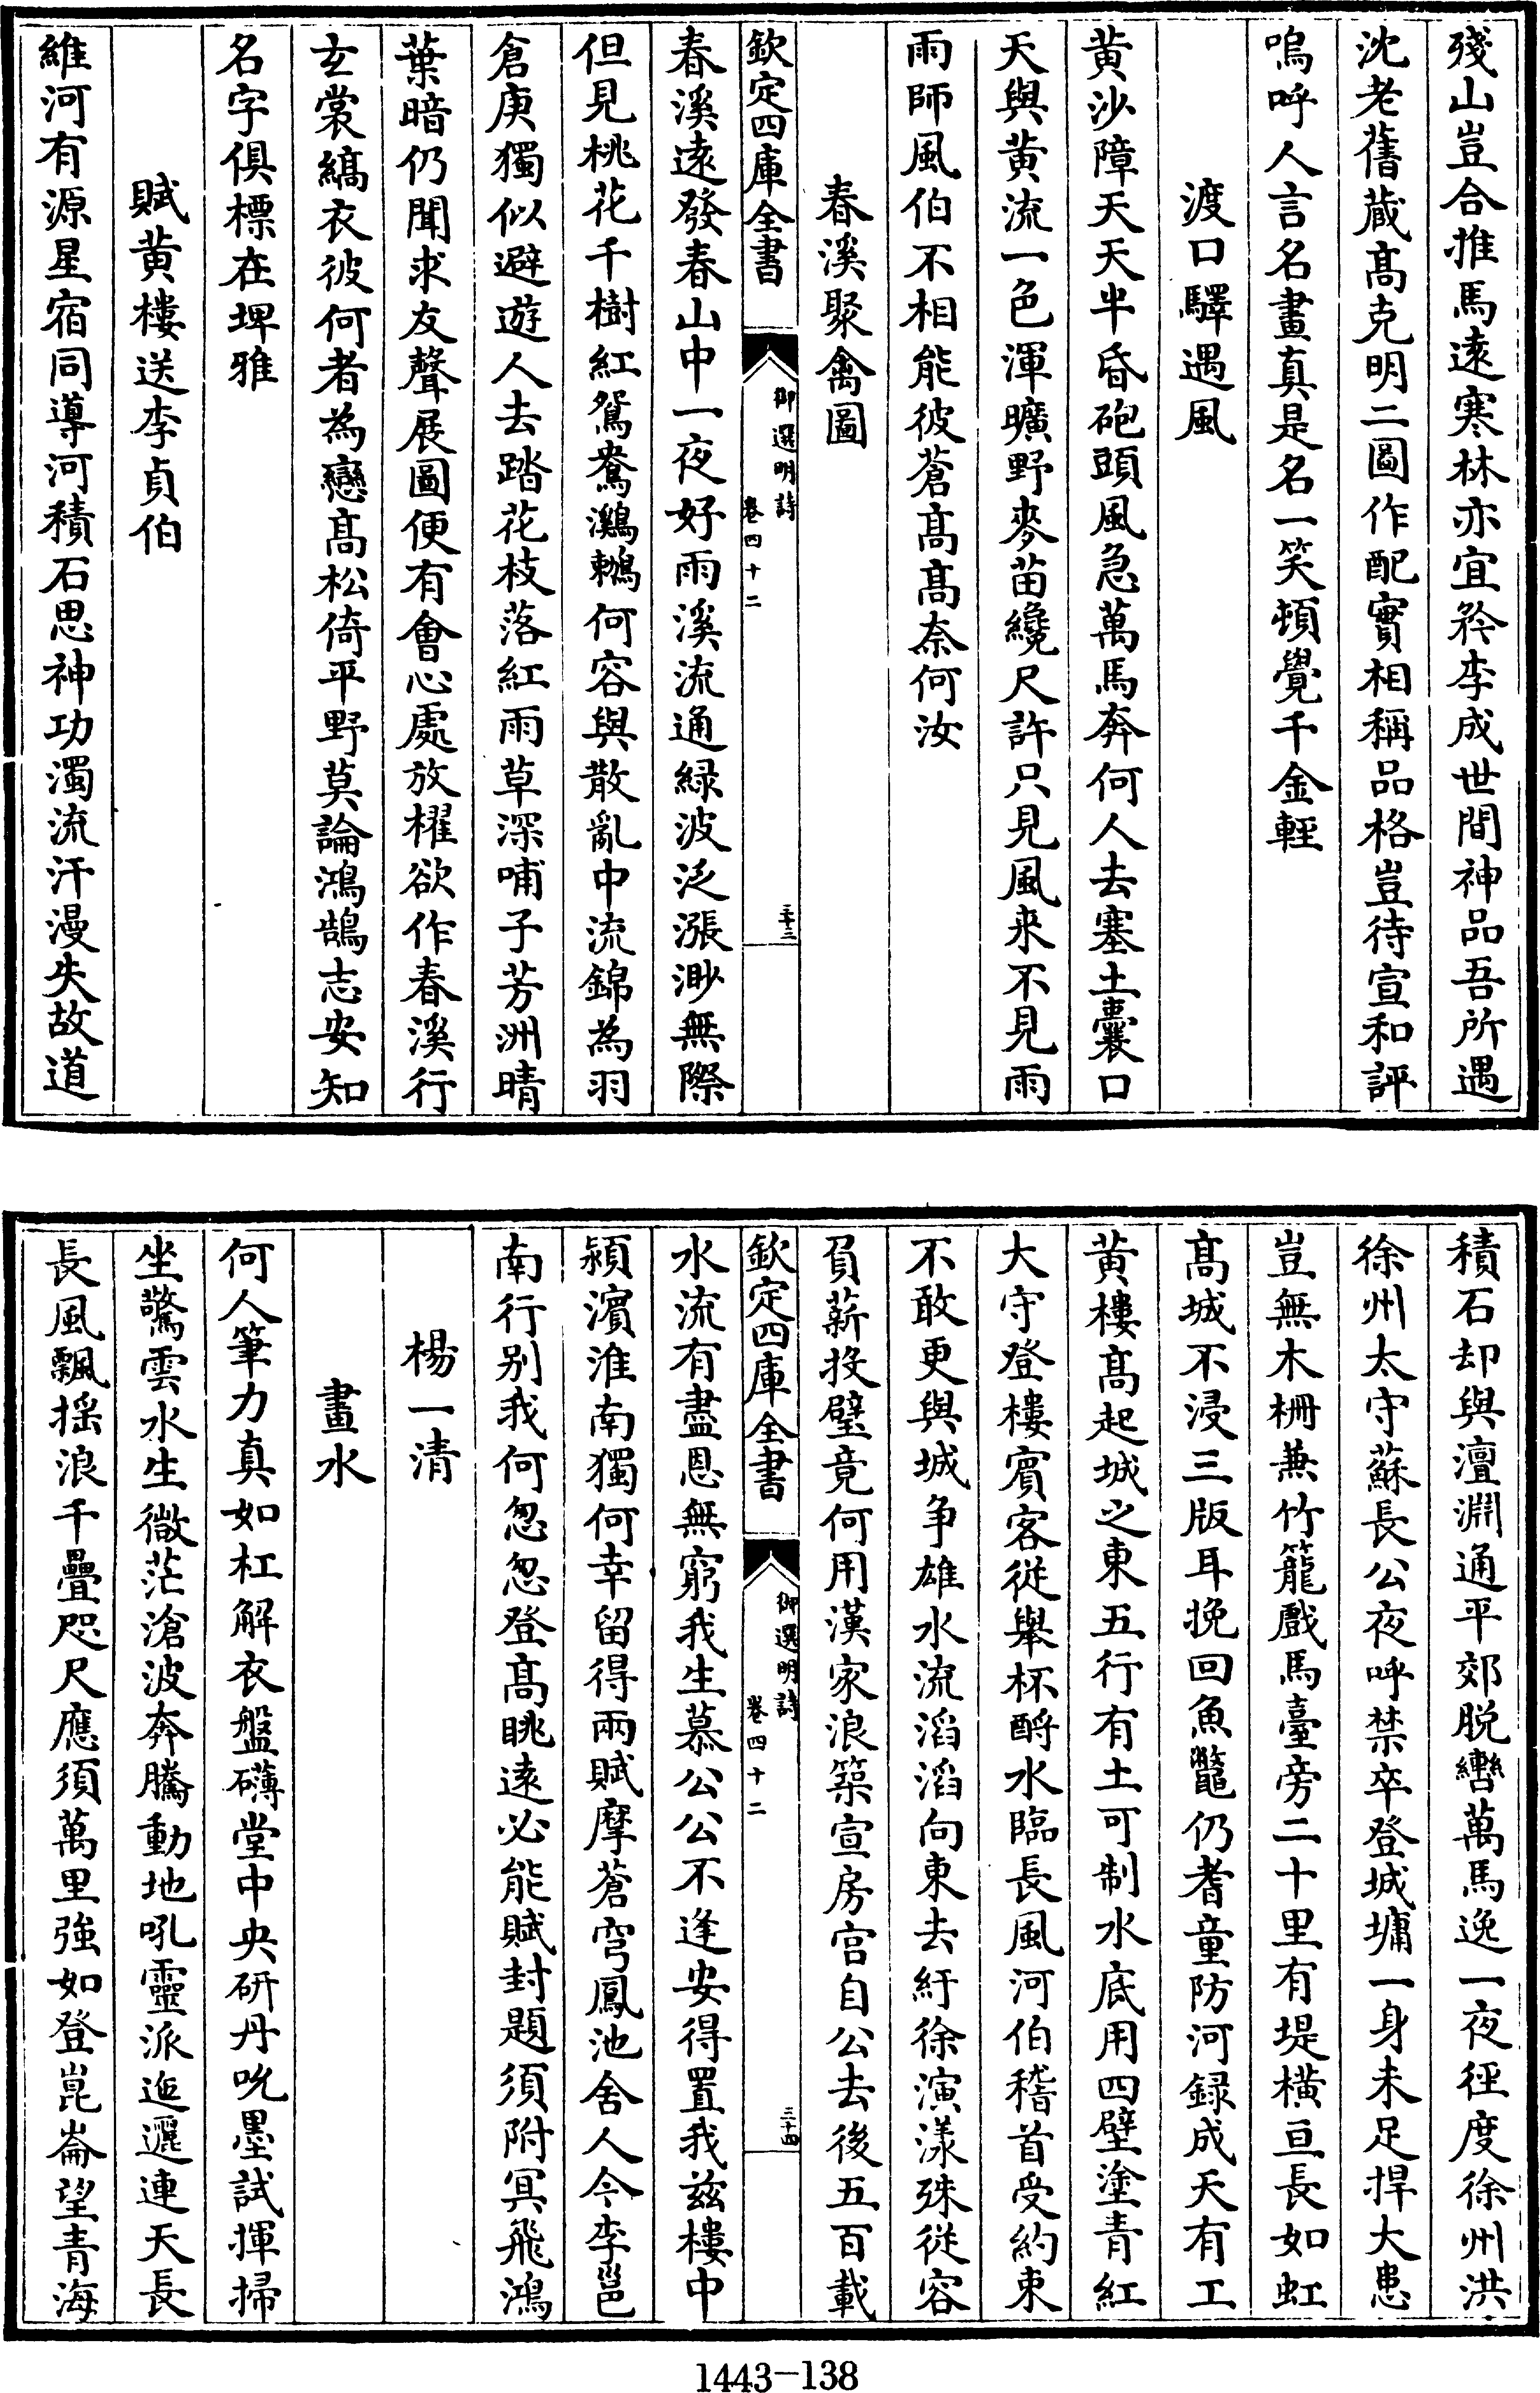 殘山豈合推馬遠寒林亦宜矜李成世間神品吾所遇
沈老舊蔵髙克明二圖作配實相稱品格豈待宣和評
嗚呼人言名畫真是名一笑頓覺千金輊
渡口驛遇風
黄沙障天天半昏砲頭風急萬馬奔何人去塞土囊口
天與黄流一色渾曠野麥苗纔尺許只見風来不見雨
雨師風伯不相能彼蒼髙髙奈何汝
春溪聚禽圖
欽定四庫全書
御選明詩
卷四十二
三十三
春溪逺發春山中一夜好雨溪流通緑波泛漲渺無際
但見桃花千樹紅鴛鴦鸂鶒何容與散亂中流錦為羽
倉庚獨似避遊人去踏花枝落紅雨草深哺子芳洲晴
葉暗仍聞求友聲展圖便有會心處放櫂欲作春溪行
玄裳縞衣彼何者為戀髙松倚平野莫論鴻鵠志安知
名字俱標在埤雅
賦黄樓送李貞伯
維河有源星宿同導河積石思神功濁流汗漫失故道
積石却與澶淵通平郊脱轡萬馬逸一夜徑度徐州洪
徐州太守蘇長公夜呼禁卒登城墉一身未足捍大患
豈無木柵兼竹籠戲馬臺旁二十里有堤横亘長如虹
髙城不浸三版耳挽回魚鼈仍耆童防河録成天有工
黄樓髙起城之東五行有土可制水底用四壁塗青紅
大守登樓賓客從舉杯酹水臨長風河伯稽首受約束
不敢更與城争雄水流滔滔向東去紆徐演漾殊從容
負薪投璧竟何用漢家浪築宣房宫自公去後五百載
欽定四庫全書
御選明詩
卷四十二
三十四
水流有盡恩無窮我生慕公公不逢安得置我兹樓中
潁濱淮南獨何幸留得兩賦摩蒼穹鳳池舍人今李邕
南行别我何忽忽登髙眺逺必能賦封題須附冥飛鴻
楊一清
畫水
何人筆力真如杠解衣盤礴堂中央研丹吮墨試揮掃
坐驚雲水生微茫滄波奔騰動地吼靈派迤邐連天長
長風飄揺浪千疊咫尺應須萬里強如登崑崙望青海
1443-138